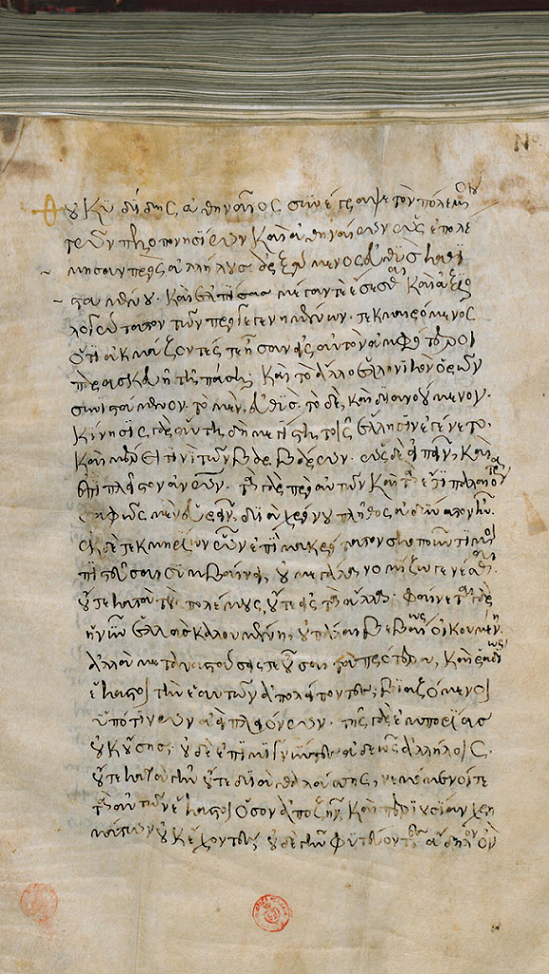 Θουκυδίδης, ἀθηναῖος συνέγραψε τὸν πόλεμον
τῶν πελοπονησίων καὶ ἀθηναίων ὡς ἐπολέ
μησαν πρὸς ἀλλήλους ἀρξάμενος εὐθὺς καθι
σταμένου. καὶ ἐλπίσας μέγαν τὲ ἔσεσθαι καὶ ἀξιο
λογώτατον τῶν προγεγενημένων. τεκμαιρόμενος
ὅτι ἀκμάζοντές τε ἦσαν ἐς αὐτὸν ἀμφότεροι
παρασκευῆ τῆ πάση, καὶ τὸ ἄλλο ἑλληνικὸν ὁρῶν
συνιστάμενον. τὸ μὲν, εὐθὺς. τὸ δὲ, καὶ διανοούμενον.
κίνησις γὰρ αὕτη, δὴ μεγίστη τοῖς ἕλλησιν ἐγένετο.
καὶ μέρει τινὶ τῶν βαρβάρων. ὡς δὲ εἰπεῖν, καὶ
ἐπὶ πλεῖστον ἀνθρώπων. τὰ γὰρ πρὸ αὐτῶν καὶ τὰ ἔτι παλαιότερα
σαφῶς μὲν εὑρεῖν, διὰ χρόνου πλῆθος ἀδύνατον ἦν.
ἐκ δὲ τεκμηρίων ὧν ἐπὶ μακρότατον σκοποῦντί μοι
πιστεῦσαι συμβαίνει, οὐ μεγάλα νομίζω γενέσθαι.
οὔτε κατὰ τοὺς πολέμους, οὔτε ἐς τὰ ἄλλα. φαίνεται γὰρ
ἡ νῦν ἑλλὰς καλουμένη, οὐ πάλαι βεβαίως οἰκουμένη,
ἀλλὰ μεταναστάσεις τε οὖσαι τὰ πρότερα, καὶ ῥαδίως
ἕκαστοι τὴν ἑαυτῶν ἀπολείποντες, βιαζόμενοι
ὑπό τινων ἀεὶ πλειόνων. τῆς γὰρ ἐμπορίας
οὐκ οὔσης, οὐδὲ ἐπιμιγνύντες ἀδεῶς ἀλλήλοις.
οὔτε κατὰ γῆν οὔτε διὰ θαλάσσης, νεμόμενοί τε
τὰ αὐτῶν ἕκαστοι ὅσον ἀποζῆν, καὶ περιουσίαν χρη
μάτων οὐκ ἔχοντες, οὐδὲ γῆν φυτεύοντες ἄδηλον ὂν